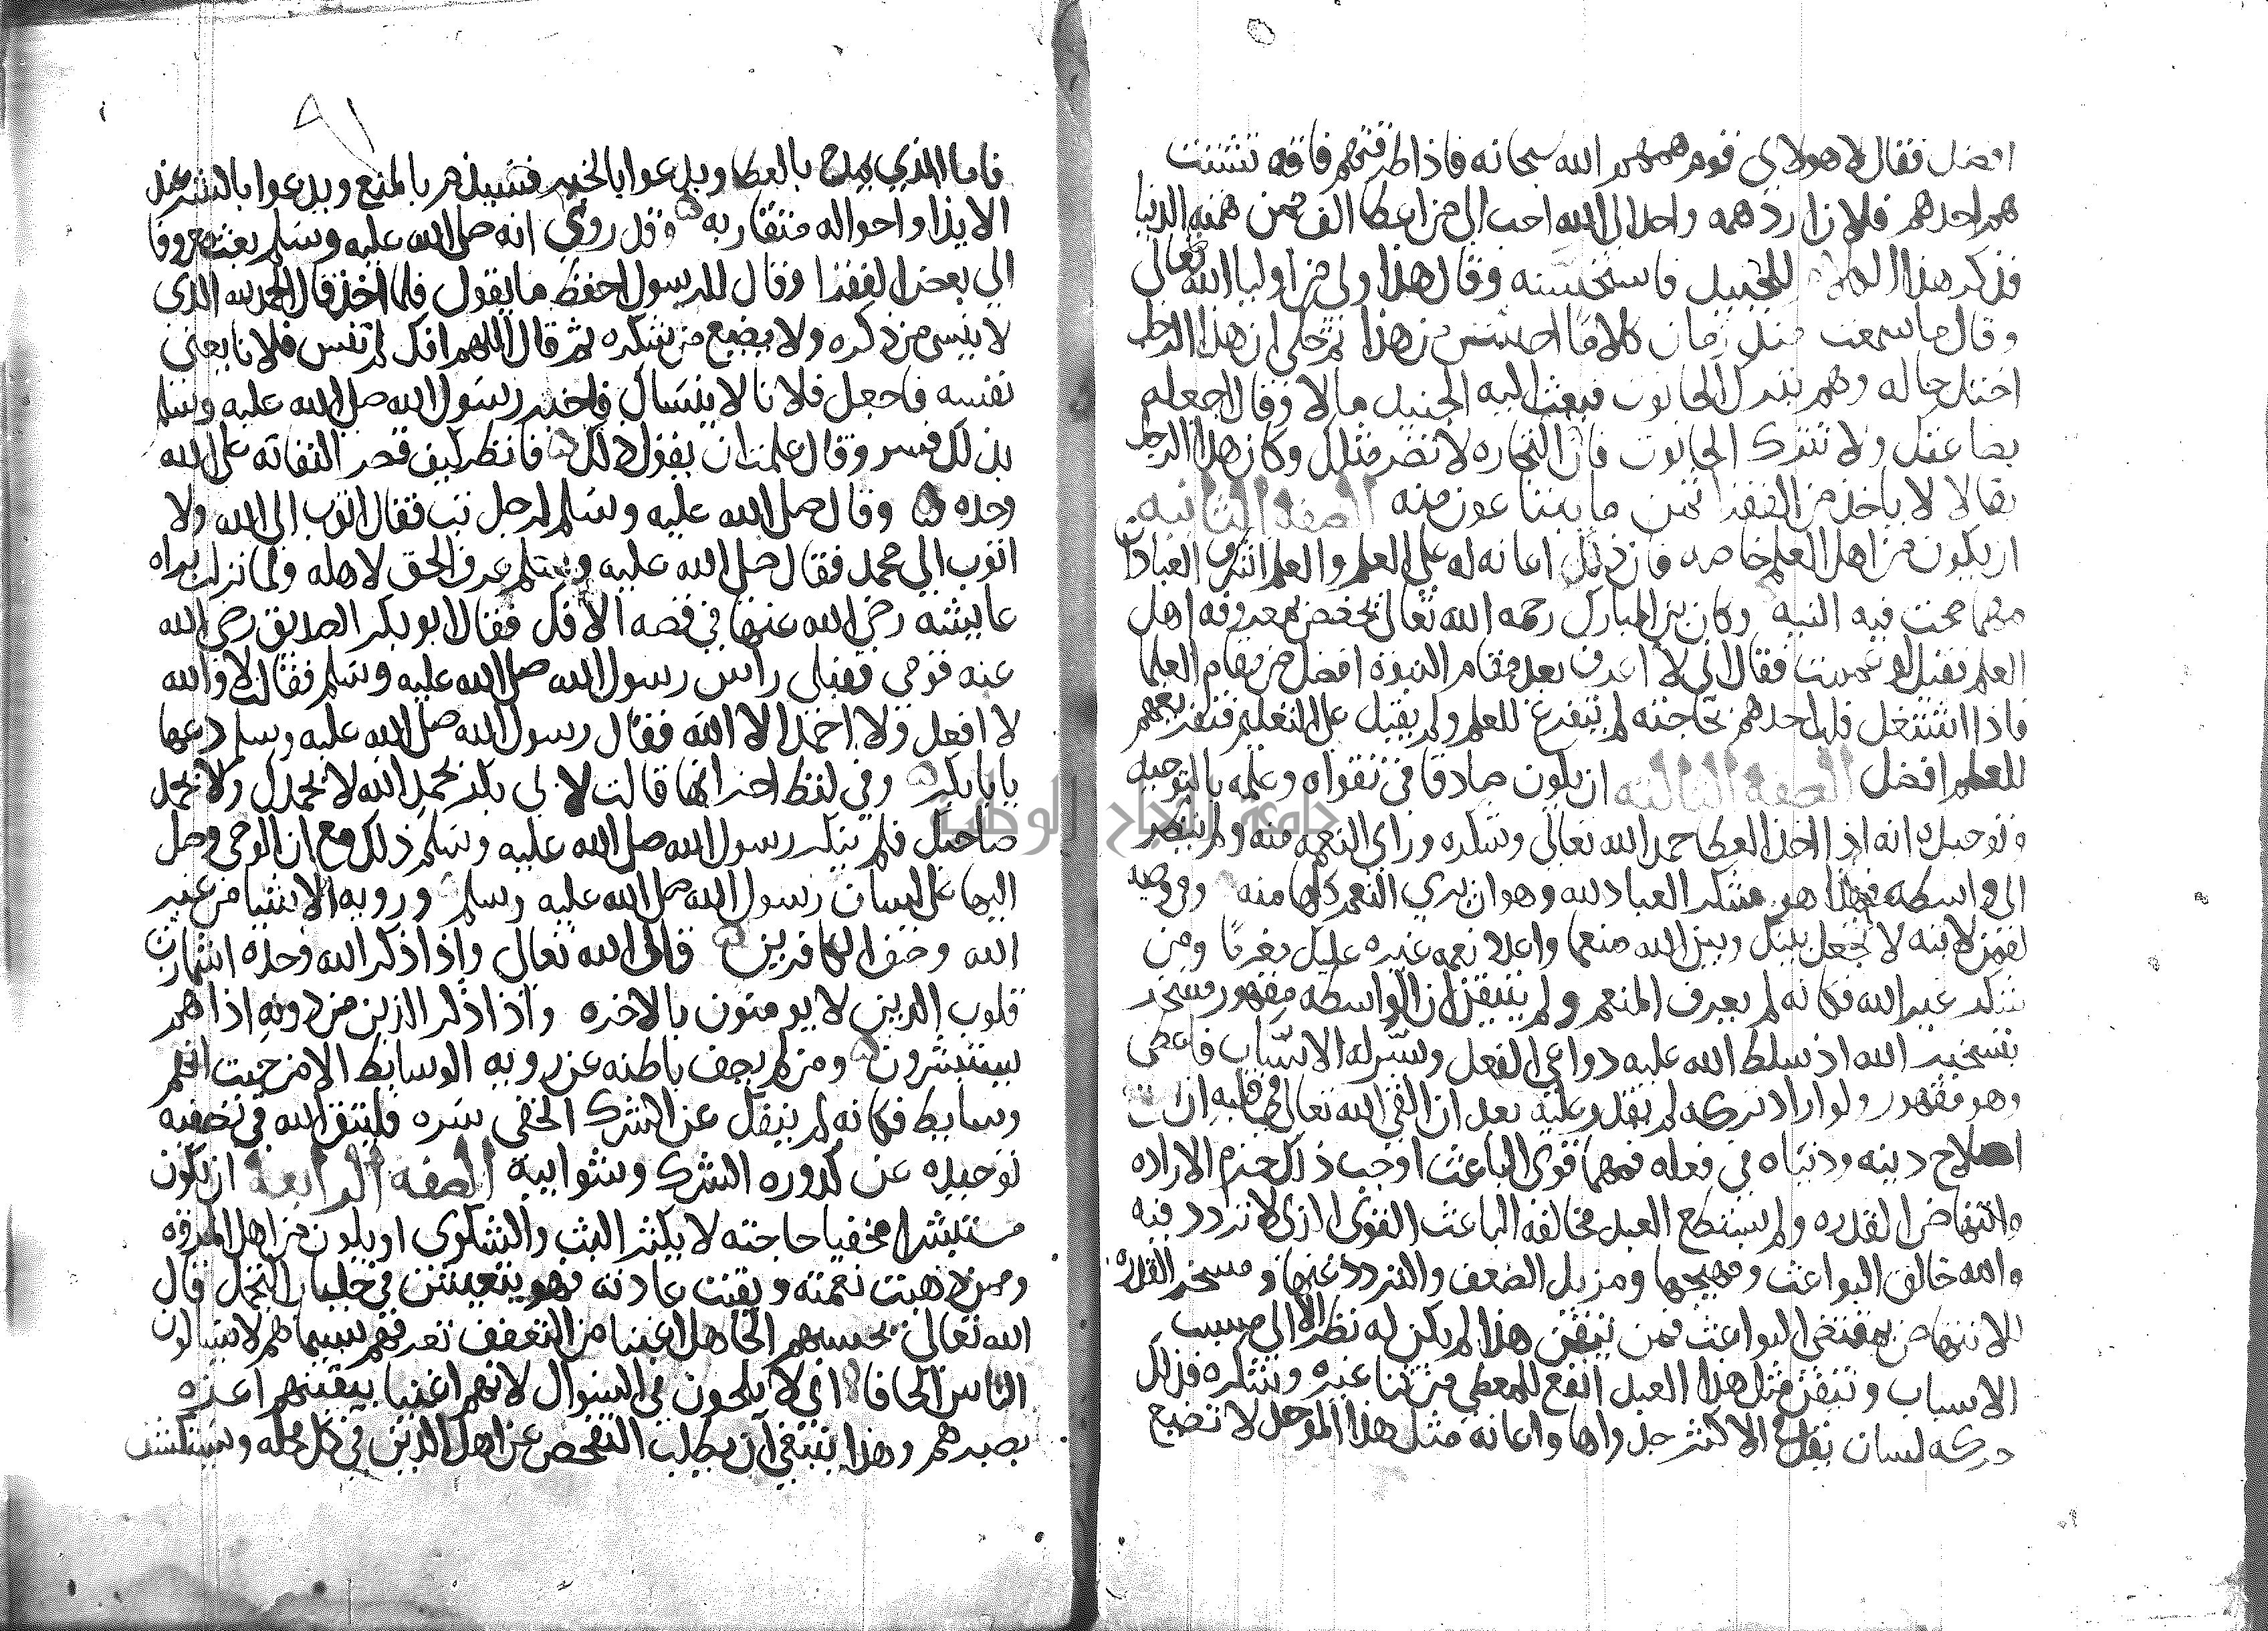 افضل فقال لا هولاى قوم همهم الله سبحانه فاذا طرقتهم فاقه تشتت
هم احدهم فلان ارد همه واحد الى الله احب الي من اعطا الف ممن همته الدنيا
فذكر هذا الكلام للجنيد فاستحسنه وقال هذا ولي من اوليا الله تعالى
وقال ما سمعت منذ زمان كلاما احسن من هذا ثم حكى ان هذا الرجل
اختل حاله وهم بترك الحانوت فبعث اليه الجنيد مالا وقال اجعله
بضاعتك ولا تترك الحانوت فان التجاره لا تضر مثلك وكان هذا الرجل
بقالا لا ياخذ من الفقرا ثمن ما يبتاعون منه الصفه الثانيه
ان يكون من اهل العلم خاصه فان ذلك اعانه له على العلم والعلم اشرف العبادات
مهما صحت فيه النيه وكان بن المبارك رحمه الله تعالى يخصص بمعروفه اهل
العلم فقيل لو عممت فقال اني لا اعرف بعد مقام النبوة افضل من مقام العلما
فاذا اشتغل قلب احدهم بحاجته لم يتفرغ للعلم ولم يقبل على التعليم فتفريغهم
للعلم افضل الصفه الثالثه ان يكون صادقا في تقواه وعلمه بالتوحيد
وتوحيده انه اذا اخذ العطا حمد الله تعالى وشكره وراى النعمه منه ولم ينظر
الى واسطه فهذا هو مشكر العباد لله وهو ان يرى النعم كلها منه وفي وصيه
لقمن لابنه لا تجعل بينك وبين الله منعما واعدد نعمه غيره عليك مغرما ومن
شكر غير الله فكانه لم يعرف المنعم ولم يتيقن ان الواسطه مقهور مسخر
بتسخير الله اذ سلط الله عليه دواعي الفعل ويسر له الاسباب فاعطى
وهو مقهور ولو اراد تركه لم يقدر عليه بعد ان القى الله تعالى في قلبه ان
اصلاح دينه ودنياه في فعله فمهما قوى الباعث اوجب ذلك جزم الاراده
وانتهاض القدره ولم يستطع العبد مخالفه الباعث القوى الذى لا تردد فيه
والله خالق البواعث ومهيجها ومزيل الضعف والتردد عنها ومسخر القدره
للانتهاض بمقتضى البواعث فمن تيقن هذا لم يكن له نظر الا الى مسبب
الاسباب وتيقن مثل هذا العبد انفع للمعطي من ثنا غيره وشكره فذلك
حركه لسان يقل في الاكثر جدواها واعانه مثل هذا الموحد لا تضيع
فاما الذي يمدح بالعطا ويدعوا بالخير فسيذم بالمنع ويدعوا بالشر عند
الايذا واحواله متقاربه وقد روي انه صلى الله عليه وسلم بعث معروفا
الي بعض الفقرا وقال للرسول احفظ ما يقول فلما اخذ قال الحمد لله الذى
لا ينسى من ذكره ولا يضيع من شكره ثم قال اللهم انك لم تنس فلانا يعني
نفسه فاجعل فلانا لا ينساك فاخبر رسول الله صلى الله عليه وسلم
بذلك فسر وقال علمت ان يقول ذلك فانظر كيف قصر التفاته على الله
وحده وقال صلى الله عليه وسلم لرجل تب فقال اتوب الى الله ولا
اتوب الي محمد فقال صلى الله عليه وسلم عرف الحق لاهله ولما نزلت براه
عايشه رضي الله عنها في قصه الافك فقال ابو بكر الصديق رضي الله
عنه قومي فقبلي راس رسول الله صلى الله عليه وسلم فقالت لا والله
لا افعل ولا احمد الا الله فقال رسول الله صلى الله عليه وسلم دعها
يابا بكر وفي لفظ اخر انها قالت لابي بكر نحمد الله لا نحمدك ولا نحمد
صاحبك فلم ينكر رسول الله صلى الله عليه وسلم ذلك مع ان الوحي وصل
اليها على لسان رسول الله صلى الله عليه وسلم ورويه الاشيا من غير
الله وصف الكافرين قال الله تعالى واذا ذكر الله وحده اشمازت
قلوب الذين لا يومنون بالاخره واذا ذكر الذين من دونه اذا هم
يستبشرون ومن لم يصف باطنه عن رويه الوسايط الا من حيث انهم
وسايط فكانه لم ينفك عن الشرك الخفي سره فليتق الله في تصفيه
توحيده عن كدوره الشرك وشوايبه الصفه الرابعه ان يكون
مستترا مخفيا حاجته لا يكثر البث والشكوى او يكون من اهل المروه
وممن ذهبت نعمته وبقيت عادته فهو يتعيش في جلباب التجمل قال
الله تعالى يحسبهم الجاهل اغنيا من التعفف تعرفهم بسيماهم لا يسالون
الناس الحافا اي لا يلحون في السوال لانهم اغنيا بيقينهم اعزه
بصبرهم وهذا ينبغي ان يطلب التفحص عن اهل الدين في كل محله ويستكشف
جامعة النجاح الوطنية